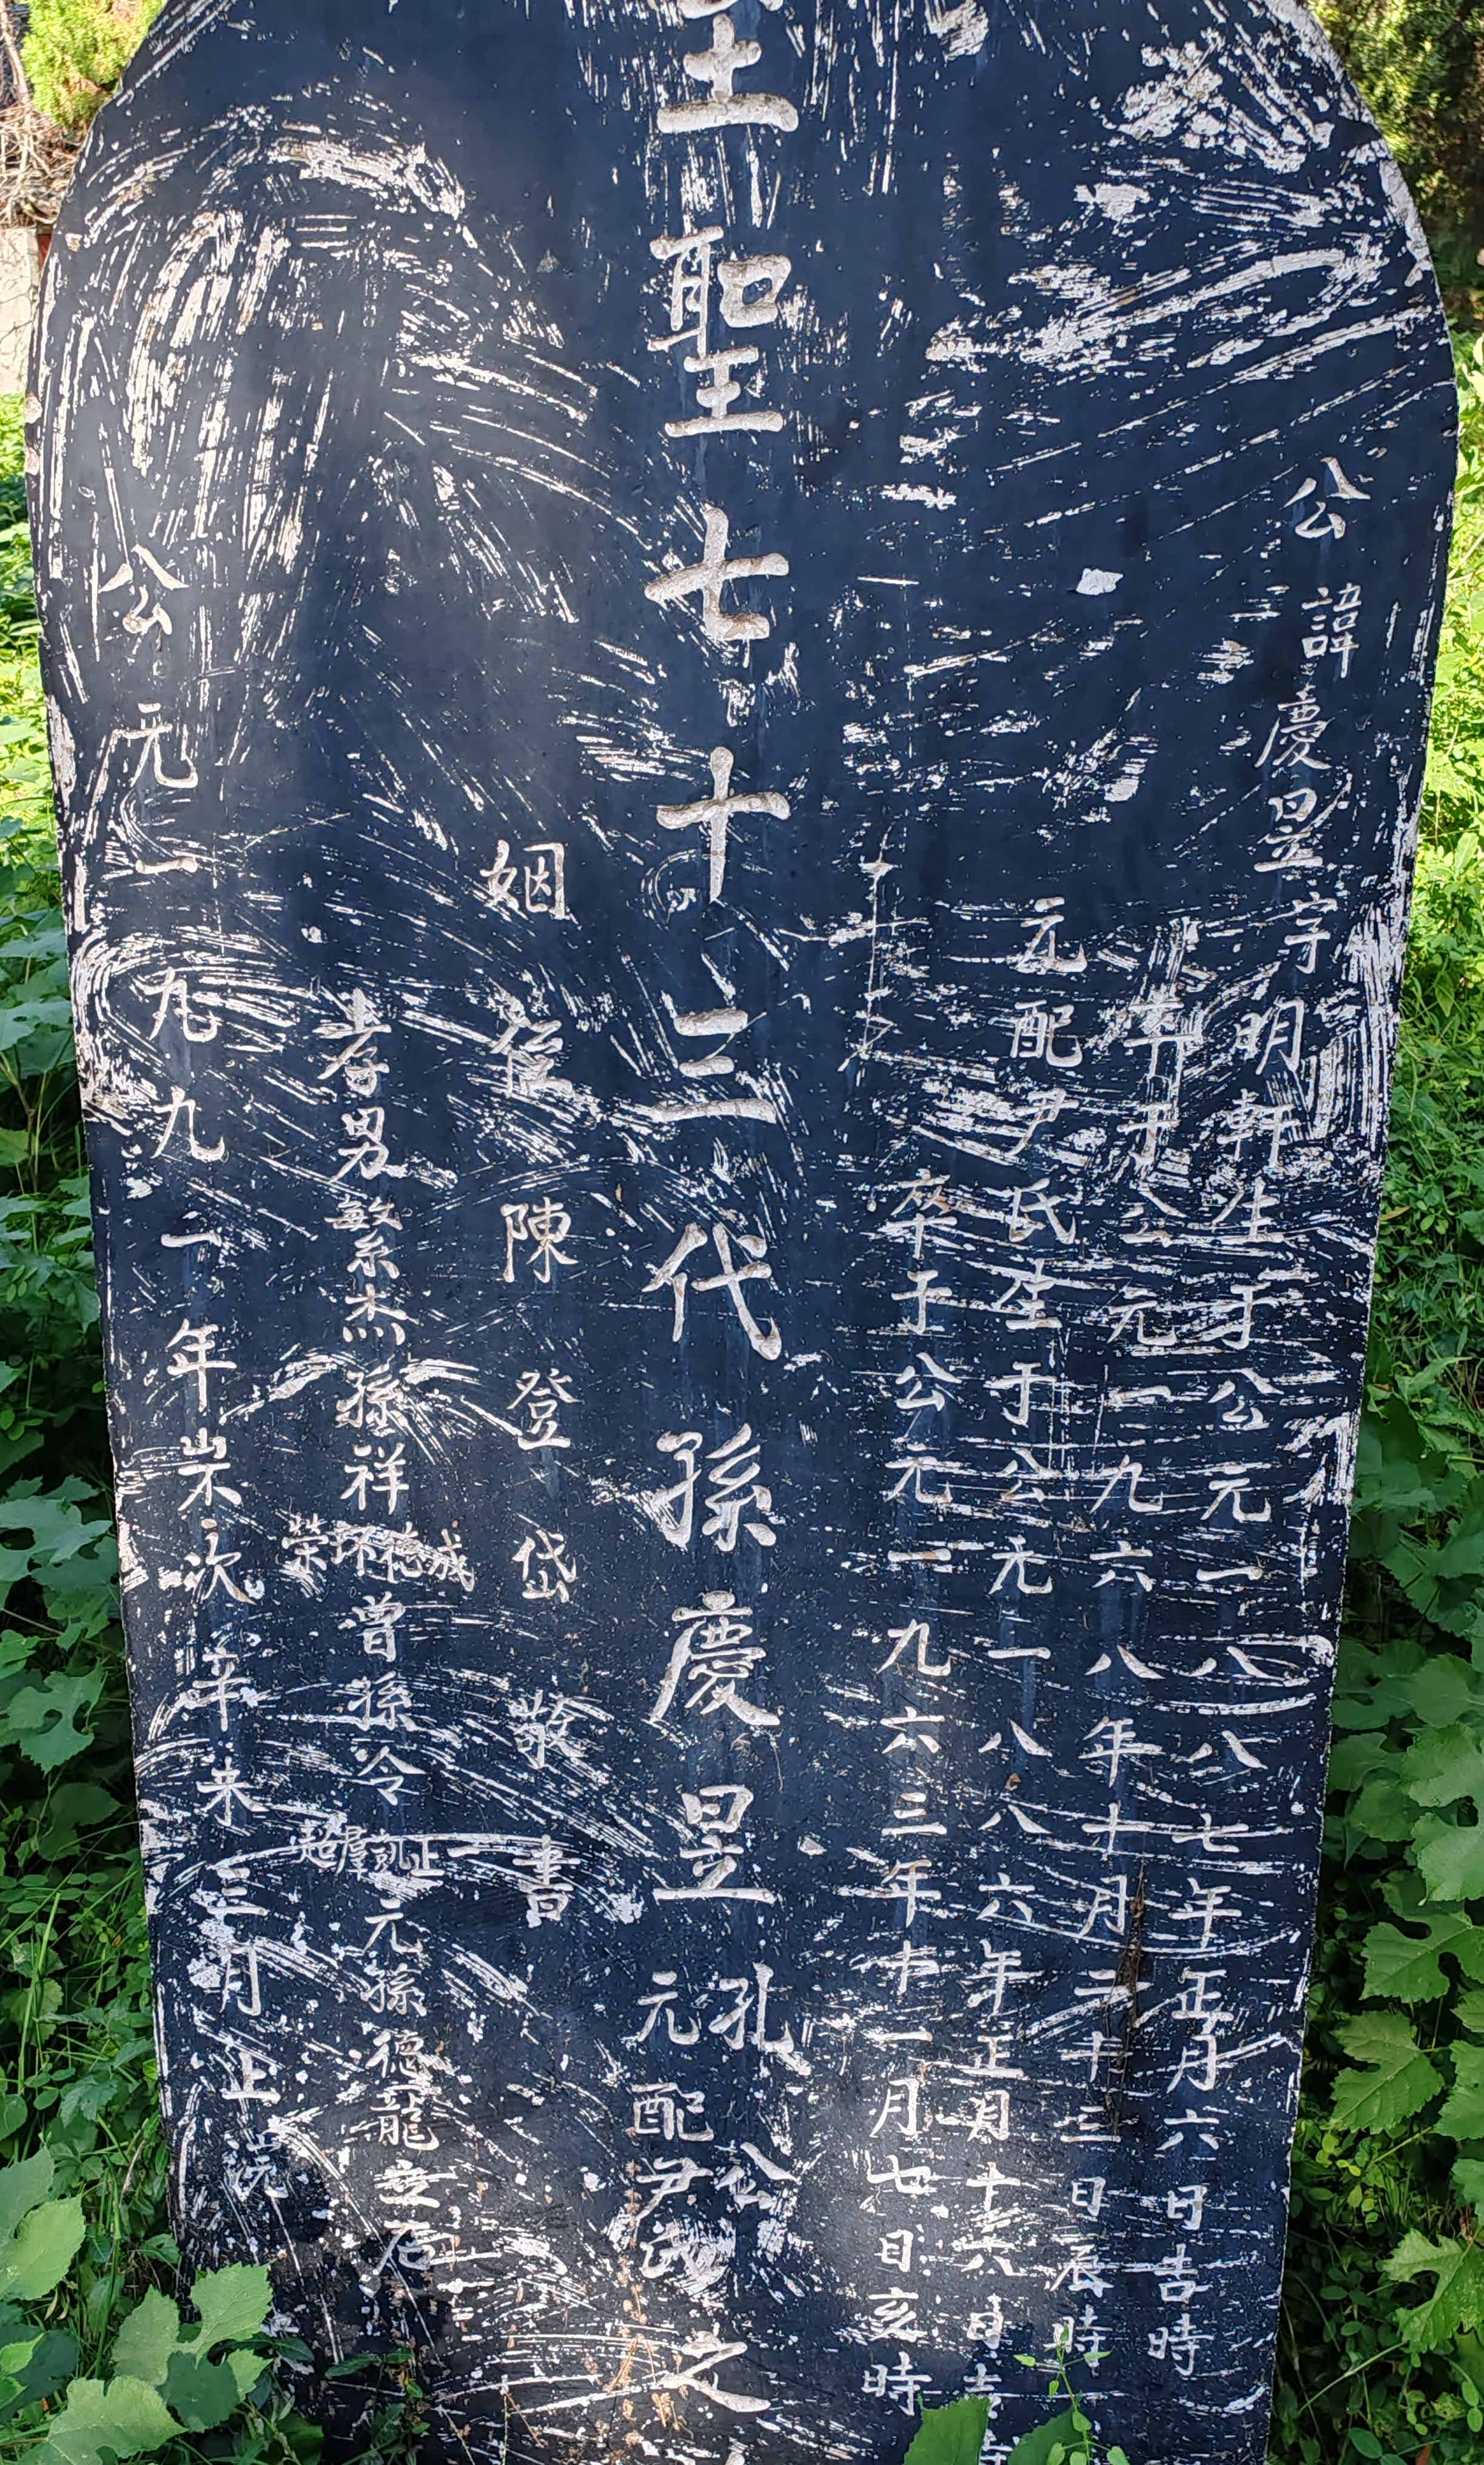 公諱慶昱字明軒生于公元一八八七年正月六日吉時
卒于公元一九六八年十月二十三日辰時
元配尹氏生于公元一八八六年正月十六日吉時
卒于公元一九六三年十一月七日亥時
至聖七十三代孫慶昱孔公元配尹氏之
姻侄陳登岱敬書
孝男繁杰孫祥成德環榮曾孫令正凱超元孫德龍立石
公元一九九一年歲次辛未三月上浣